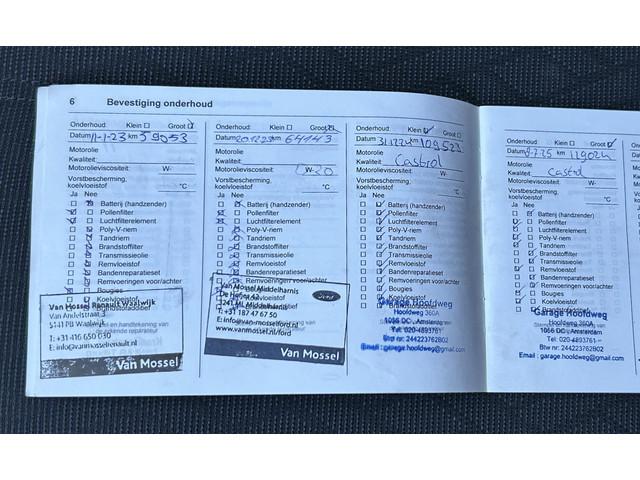 6 Bevestiging onderhoud
Onderhoud: Klein Groot
Datum 11-1-23 km 59053
Motorolie
Kwaliteit:
Motorolieviscositeit: W-
Vorstbescherming,
koelvloeistof °C
Ja Nee
Batterij (handzender)
Pollenfilter
Luchtfilterelement
Poly-V-riem
Tandriem
Brandstoffilter
Transmissieolie
Remvloeistof
Bandenreparatieset
Remvoeringen voor/achter
Bougies
Koelvloeistof
Van Mossel Renault Waalwijk
Van Andelstraat 3
5141 PB Waalwijk
T: +31 416 650 030
E: info@vanmosselrenault.nl
Van Mossel
Onderhoud: Klein Groot
Datum km 64143
Motorolie
Kwaliteit:
Motorolieviscositeit: W-20
Vorstbescherming,
koelvloeistof °C
Ja Nee
Batterij (handzender)
Pollenfilter
Luchtfilterelement
Poly-V-riem
Tandriem
Brandstoffilter
Transmissieolie
Remvloeistof
Bandenreparatieset
Remvoeringen voor/achter
Van Mossel Ford Middelharnis
T: +31 187 47 67 50
www.vanmosselford.nl/ford
Van Mossel
Onderhoud: Klein Groot
Datum km 109523
Motorolie
Kwaliteit: Castrol
Motorolieviscositeit: W-
Vorstbescherming,
koelvloeistof °C
Ja Nee
Batterij (handzender)
Pollenfilter
Luchtfilterelement
Poly-V-riem
Tandriem
Brandstoffilter
Transmissieolie
Remvloeistof
Bandenreparatieset
Remvoeringen voor/achter
Bougies
Garage Hooldweg
Hooldweg 360A
1066 DC, Amsterdam
Tel: 020-4893761
Btw nr: 244223762B02
Email: garage.hooldweg@gmail.com
Onderhoud: Klein Groot
Datum km 119024
Motorolie
Kwaliteit: Castrol
Motorolieviscositeit: W-
Vorstbescherming,
koelvloeistof °C
Ja Nee
Batterij (handzender)
Pollenfilter
Luchtfilterelement
Poly-V-riem
Tandriem
Brandstoffilter
Transmissieolie
Remvloeistof
Bandenreparatieset
Remvoeringen voor/achter
Bougies
Koelvloeistof
Garage Hooldweg
1066 DC, Amsterdam
Tel: 020-4893761
Btw nr: 244223762B02
Email: garage.hooldweg@gmail.com